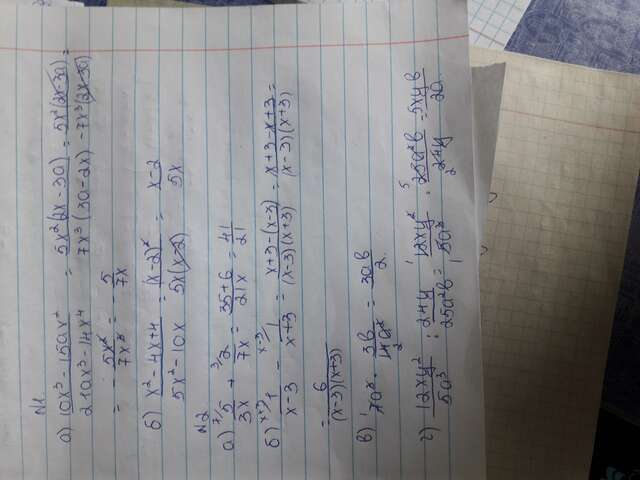 N1
а) 10x³ - 15ax² / 21ax³ - 14x⁴ = 5x²(2x - 3a) / 7x³(3a - 2x) = 5x²(2x - 3a) / -7x³(2x - 3a) =
= - 5x² / 7x³ = - 5 / 7x
б) x² - 4x + 4 / 5x² - 10x = (x - 2)² / 5x(x - 2) = x - 2 / 5x
N2
а) 7/ 5 / 3x + 3/ 2 / 7x = 35 + 6 / 21x = 41 / 21
б) x+3/ 1 / x - 3 - x-3/ 1 / x + 3 = x + 3 - (x - 3) / (x - 3)(x + 3) = x + 3 - x + 3 / (x - 3)(x + 3) =
= 6 / (x - 3)(x + 3)
в) 7a² · 3b / 14a² = 3ab / 2
г) 12xy² / 5a³ : 24y / 25a²b = 12xy² / 5a³ · 25a²b / 24y = 5xyb / 2a